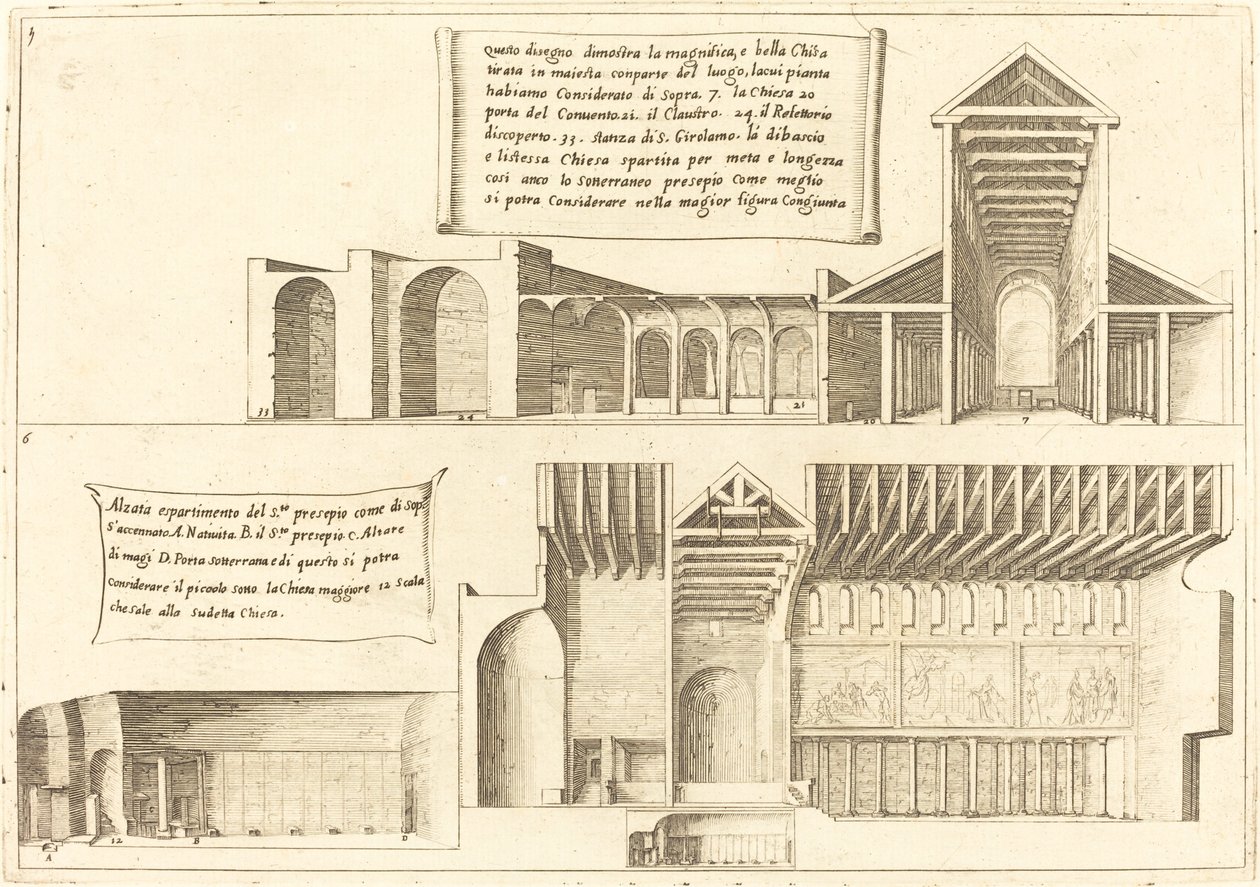 5
Questo disegno dimostra la magnifica, e bella Chiesa
tirata in maiesta conparte del luogo, lacui pianta
habiamo Considerato di Sopra. 7. la Chiesa 20
porta del Conuento. 21. il Claustro. 24. il Refettorio
discoperto. 33. stanza di S. Girolamo. là dibascio
e listessa Chiesa spartita per meta e longezza
cosi anco lo Sotterraneo presepio Come meglio
si potra Considerare nella magior figura Congiunta
33
24
21
20
7
6
Alzata espartimento del S.to presepio come di Sop.a
s'accennato A. Natiuita. B. il S.to presepio. C. Altare
di magi D. Porta sotterrana e di questo si potra
considerare il piccolo sotto la Chiesa maggiore 12 Scala
che sale alla Sudetta Chiesa.
A
12
B
D